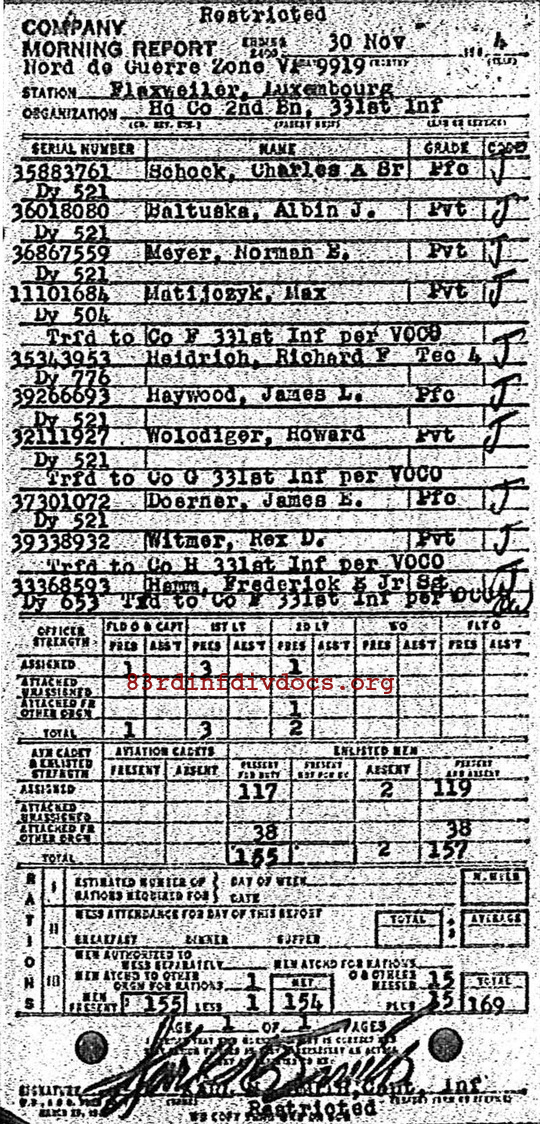 Restricted
COMPANY
MORNING REPORT ENDING 2400 30 Nov 194 4
Nord de Guerre Zone VP 9919
STATION Flaxweiler, Luxembourg
ORGANIZATION Hq Co 2nd Bn, 331st Inf
SERIAL NUMBER NAME GRADE CODE
35883761 Schock, Charles A Sr Pfc J
Dy 521
36018080 Baltuska, Albin J. Pvt J
Dy 521
36867559 Meyer, Norman E. Pvt J
Dy 521
11101684 Matijczyk, Max Pvt J
Dy 504
Trfd to Co F 331st Inf per VOCO
35343953 Heidrich, Richard F Tec 4 J
Dy 776
39266693 Haywood, James L. Pfc J
Dy 521
32111927 Wolodiger, Howard Pvt J
Dy 521
Trfd to Co G 331st Inf per VOCO
37301072 Doerner, James E. Pfc J
Dy 521
39338932 Witmer, Rex D. Pvt J
Trfd to Co H 331st Inf per VOCO
33368593 Hamm, Frederick E Jr Sg
Dy 653 Trd to Co F 331st Inf per VOCO
OFFICER STRENGTH FLD O & CAPT 1ST LT 2D LT WO FLT O
PRES ABS'T PRES ABS'T PRES ABS'T PRES ABS'T PRES ABS'T
ASSIGNED 1 3 1
ATTACHED UNASSIGNED
83rdinfdivdocs.org
ATTACHED FR OTHER ORGN 1
TOTAL 1 3 2
AVN CADET & ENLISTED STRENGTH AVIATION CADETS ENLISTED MEN
PRESENT ABSENT PRESENT FOR DUTY PRESENT NOT FOR DY ABSENT PRESENT AND ABSENT
ASSIGNED 117 2 119
ATTACHED UNASSIGNED
ATTACHED FR OTHER ORGN 38 38
TOTAL 155 2 157
RATIONS
I ESTIMATED NUMBER OF RATIONS REQUIRED FOR DAY OF WEEK DATE
II MESS ATTENDANCE FOR DAY OF THIS REPORT TOTAL ÷3 AVERAGE
BREAKFAST DINNER SUPPER
III MEN AUTHORIZED TO MESS SEPARATELY MEN ATCHD FOR RATIONS
MEN ATCHD TO OTHER ORGN FOR RATIONS 1 NET O & OTHERS MESSED 15 TOTAL
MEN PRESENT 155 LESS 1 154 PLUS 15 169
PAGE 1 OF 1 PAGES
SIGNATURE Capt, Inf
Restricted